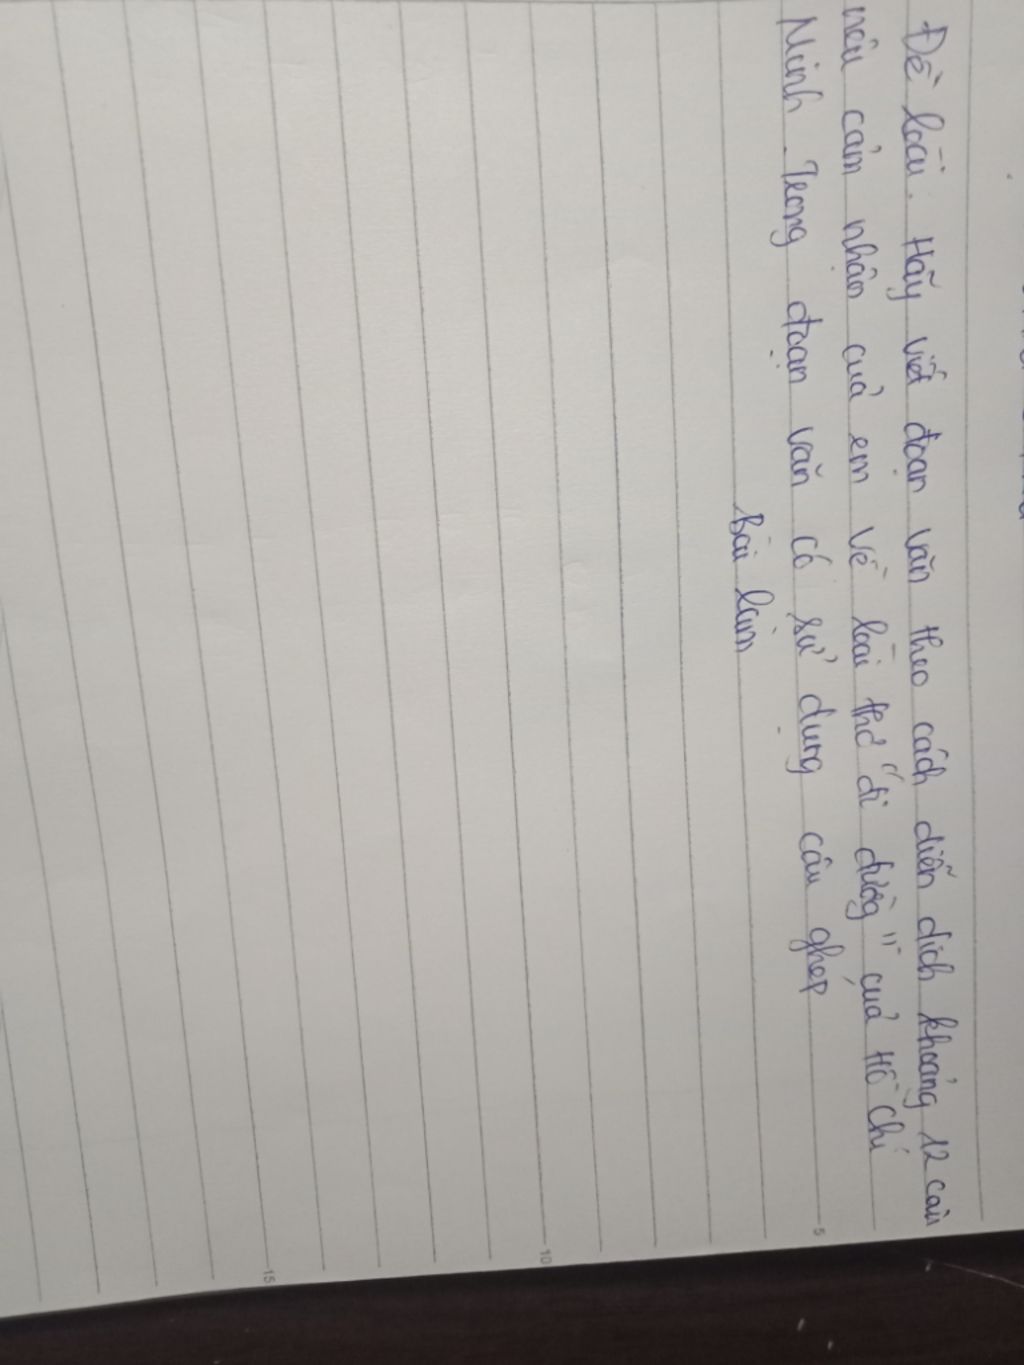 Đề bài: Hãy viết đoạn văn theo cách diễn dịch khoảng 12 câu
nêu cảm nhận của em về bài thơ "đi đường" của Hồ Chí
Minh. Trong đoạn văn có sử dụng câu ghép
Bài làm
5
10
15